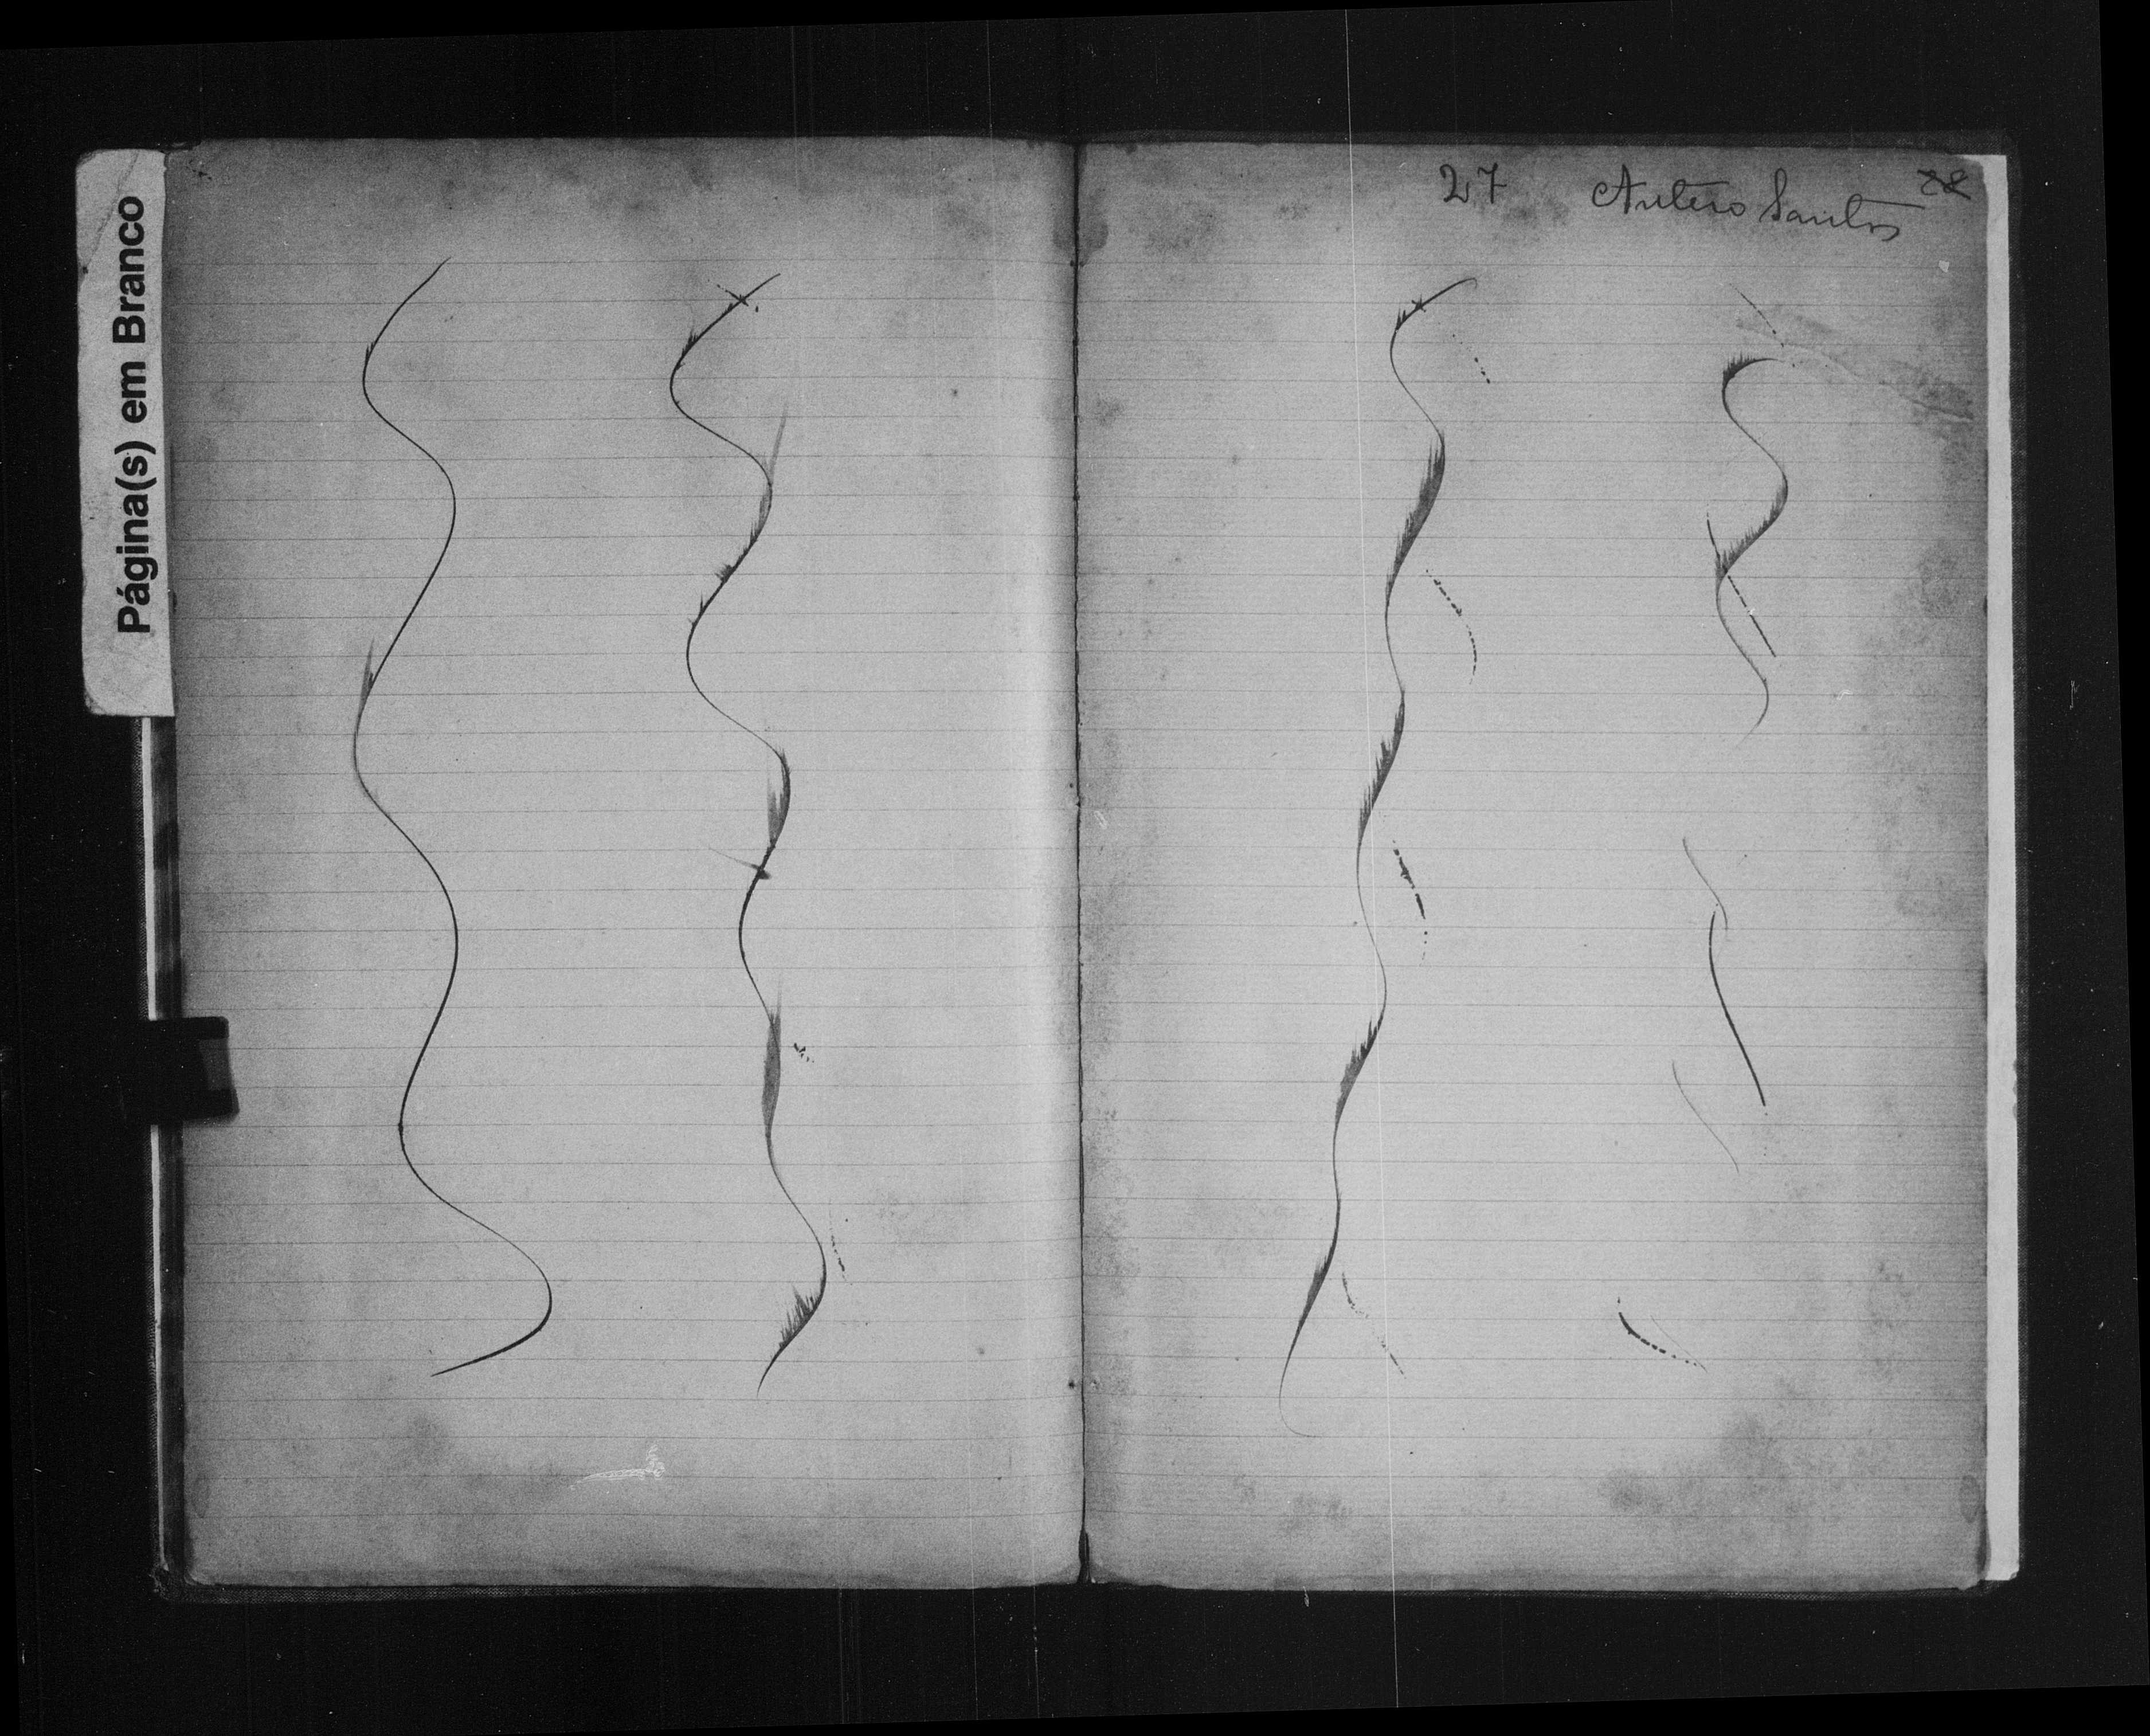 Página(s) em Branco
27 Antero Santos 28